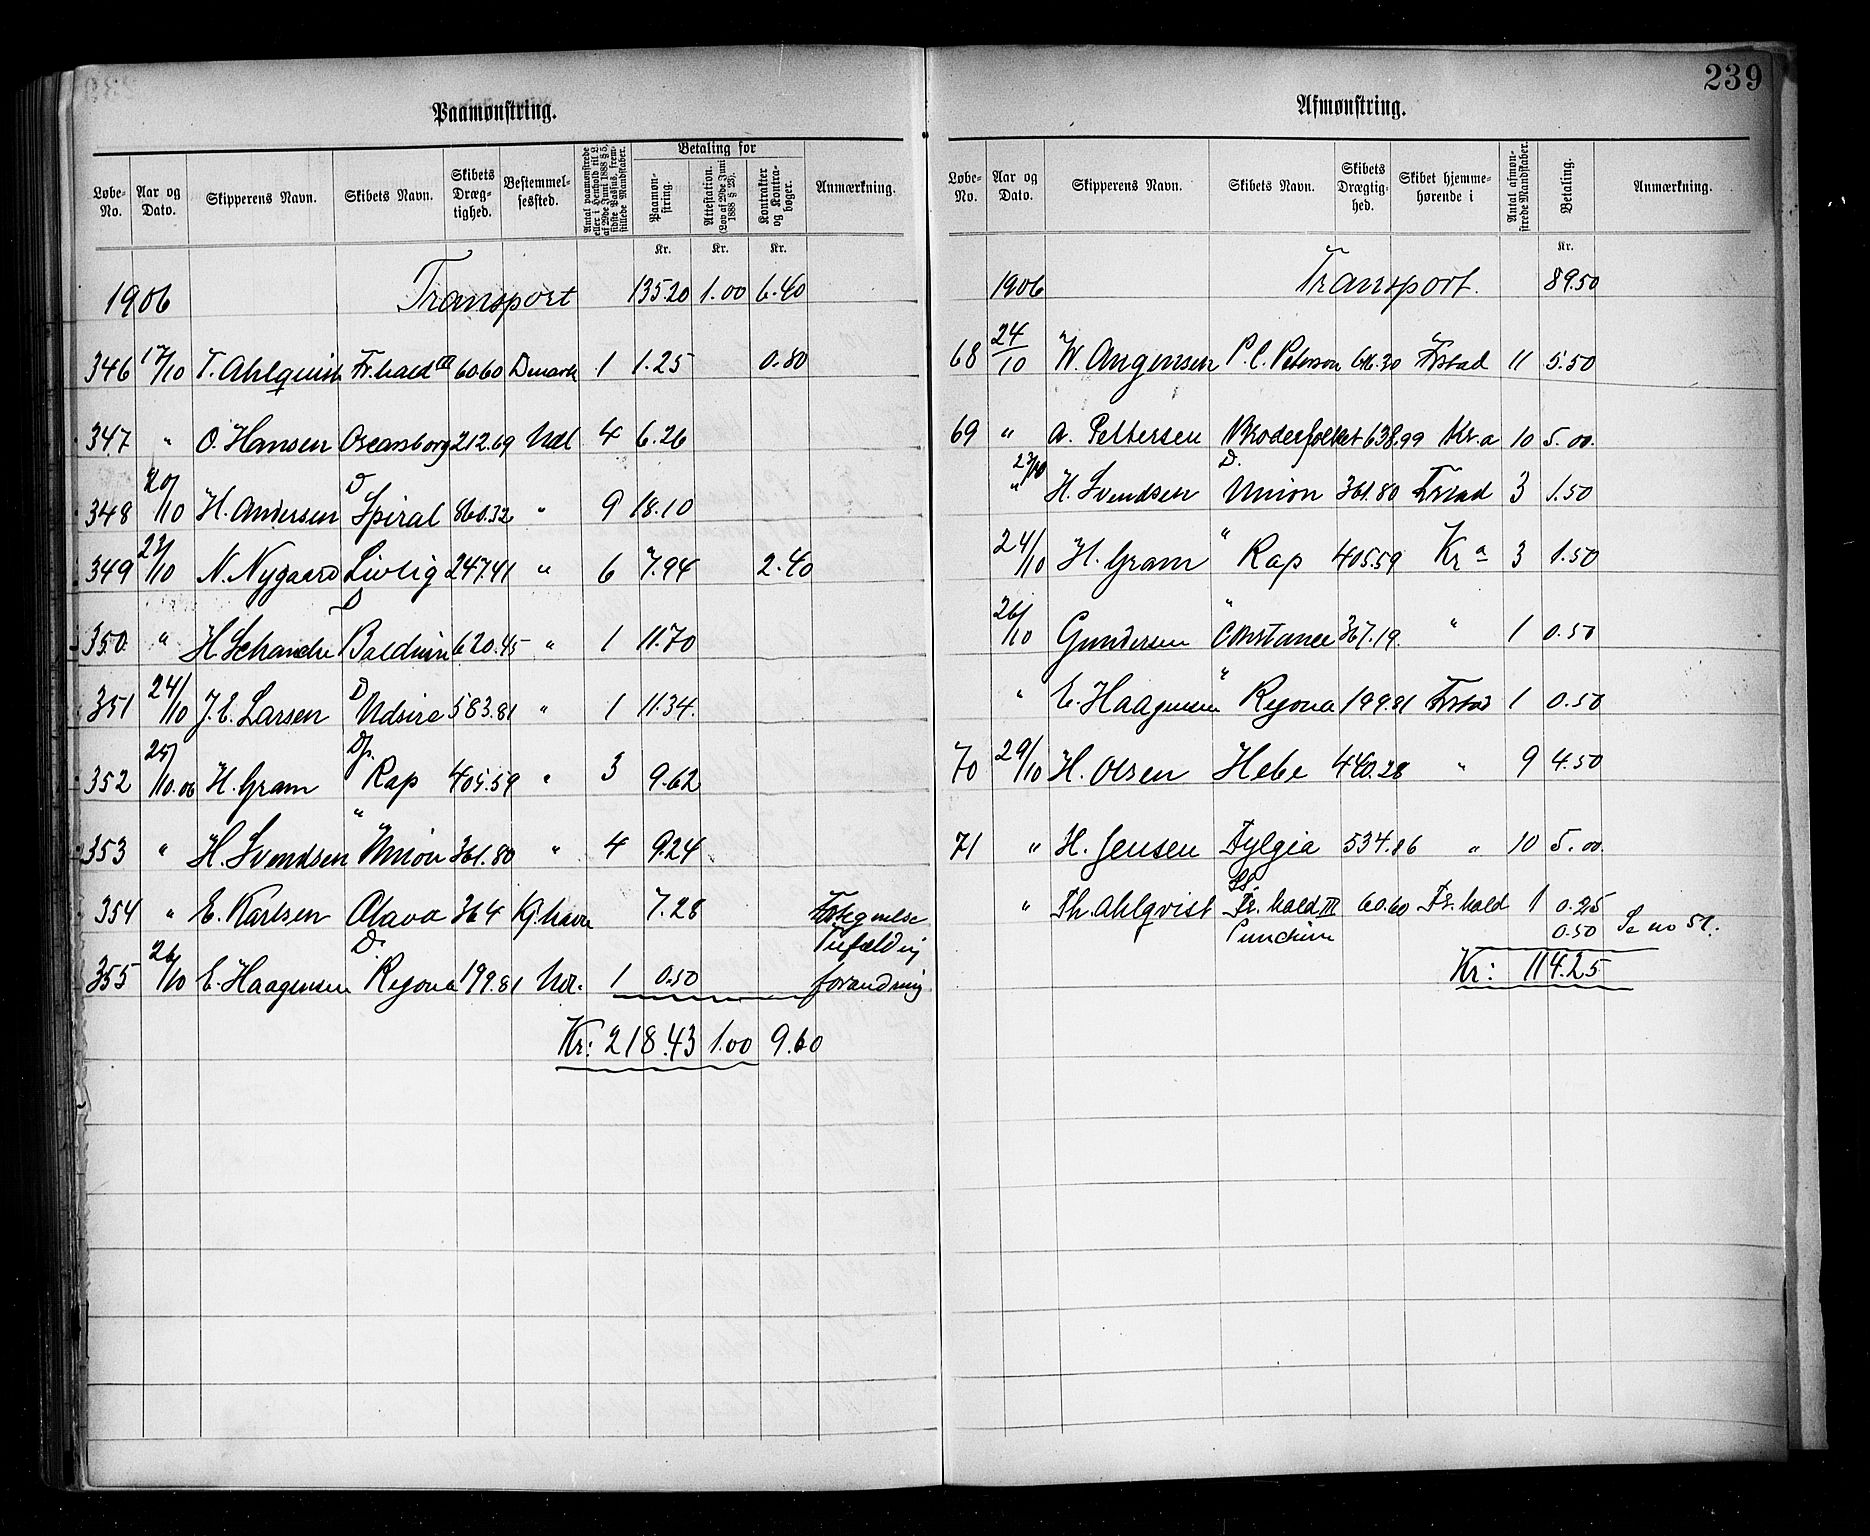 239
Paamønstring.
Løbe-No. | Aar og Dato. | Skipperens Navn. | Skibets Navn. | Skibets Dræg-tighed. | Bestemmel-sessted. | Antal paamønstrede eller i Henhold til L. af 29de Juni 1888 § 5, sidste Passus, frem-stillede Mandskaber. | Betaling for Paamøn-string. Kr. | Attestation. (Lov af 29de Juni 1888 § 23). Kr. | Kontrakter og Kontra-bøger. Kr. | Anmærkning.
1906 Transport 135.20 1.00 6.40
346 17/10 T. Ahlquist Fr.hald III 60.60 Dmark 1 1.25 0.80
347 " O. Hansen Oscarsborg 212.69 Udl 4 6.26
348 20/10 H. Andersen D Spiral 860.32 " 9 18.10
349 23/10 N. Nygaard Livlig 247.41 " 6 7.94 2.40
350 " H. Schanche D Baldwin 620.45 " 1 11.70
351 24/10 J. E. Larsen D Udsire 583.81 " 1 11.34.
352 25/10.06 H. Gram D/s. Rap 405.59 " 3 9.62
353 " H. Svendsen " Union 361.80 " 4 9.24
354 " E. Karlsen Olava 364 Kj.havn 7.28
355 26/10 E. Haagensen D. Regona 199.81 Udl. 1 0.50 Tilfældig forandring
Kr: 218.43 1.00 9.60
Afmønstring.
Løbe-No. | Aar og Dato. | Skipperens Navn. | Skibets Navn. | Skibets Drægtig-hed. | Skibet hjemme-hørende i | Antal afmøn-strede Mandskaber. | Betaling. Kr. | Anmærkning.
1906 Transport. 89.50
68 24/10 W. Angensen P. C. Peterson 616.30 Frstad 11 5.50
69 " A. Pettersen Broderfolket 638.99 Kr.a 10 5.00.
" 23/10 H. Svendsen D. Union 361.80 Frstad 3 1.50
24/10 H. Gram " Rap 405.59 Kr a 3 1.50
26/10 Gundersen " Constance 367.19. " 1 0.50
" E. Haagensen " Regona 199.81 Frstad 1 0.50
70 29/10 H. Olsen Hebe 440.28 " 9 4.50
71 " H. Jensen Fylgia 534.86 " 10 5.00.
" Th. Ahlqvist SS. Fr. hald III 60.60 Fr. hald 1 0.25
0.50 Se no 51.
Kr: 114.25